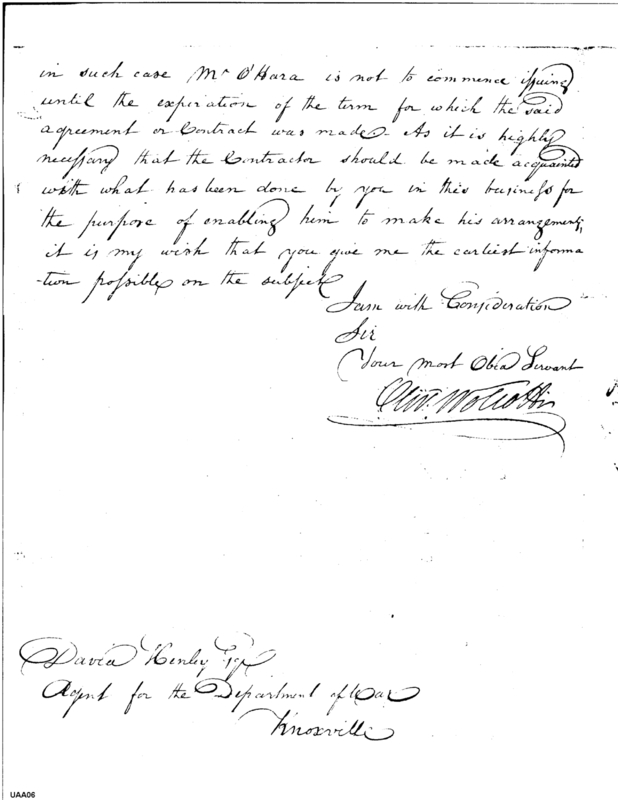 in such case Mr O'Hara is not to commence issuing
until the expiration of the term for which the said
agreement or Contract was made. As it is highly
necessary that the Contractor should be made acquainted
with what has been done by you in this business for
the purpose of enabling him to make his arrangements,
it is my wish that you give me the earliest informa
-tion possible on the subject
I am with Consideration
Sir
Your most Obed Servant
Olivr. Wolcott
David Henley Esq
Agent for the Department of War
Knoxville
UAA06